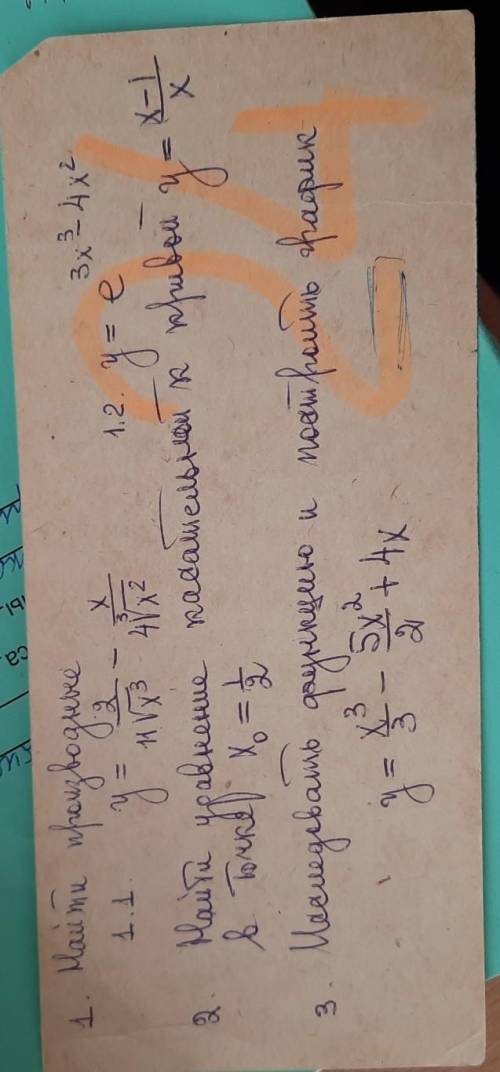 1. Найти производные
1.1 y = 2/(11√x³) − x/(4∛x²) 1.2. y = e^(3x³−4x²)
2. Найти уравнение касательной к кривой y = (x−1)/x
в точке x₀ = 1/2
3. Исследовать функцию и построить график
y = x³/3 − 5x²/2 + 4x
24